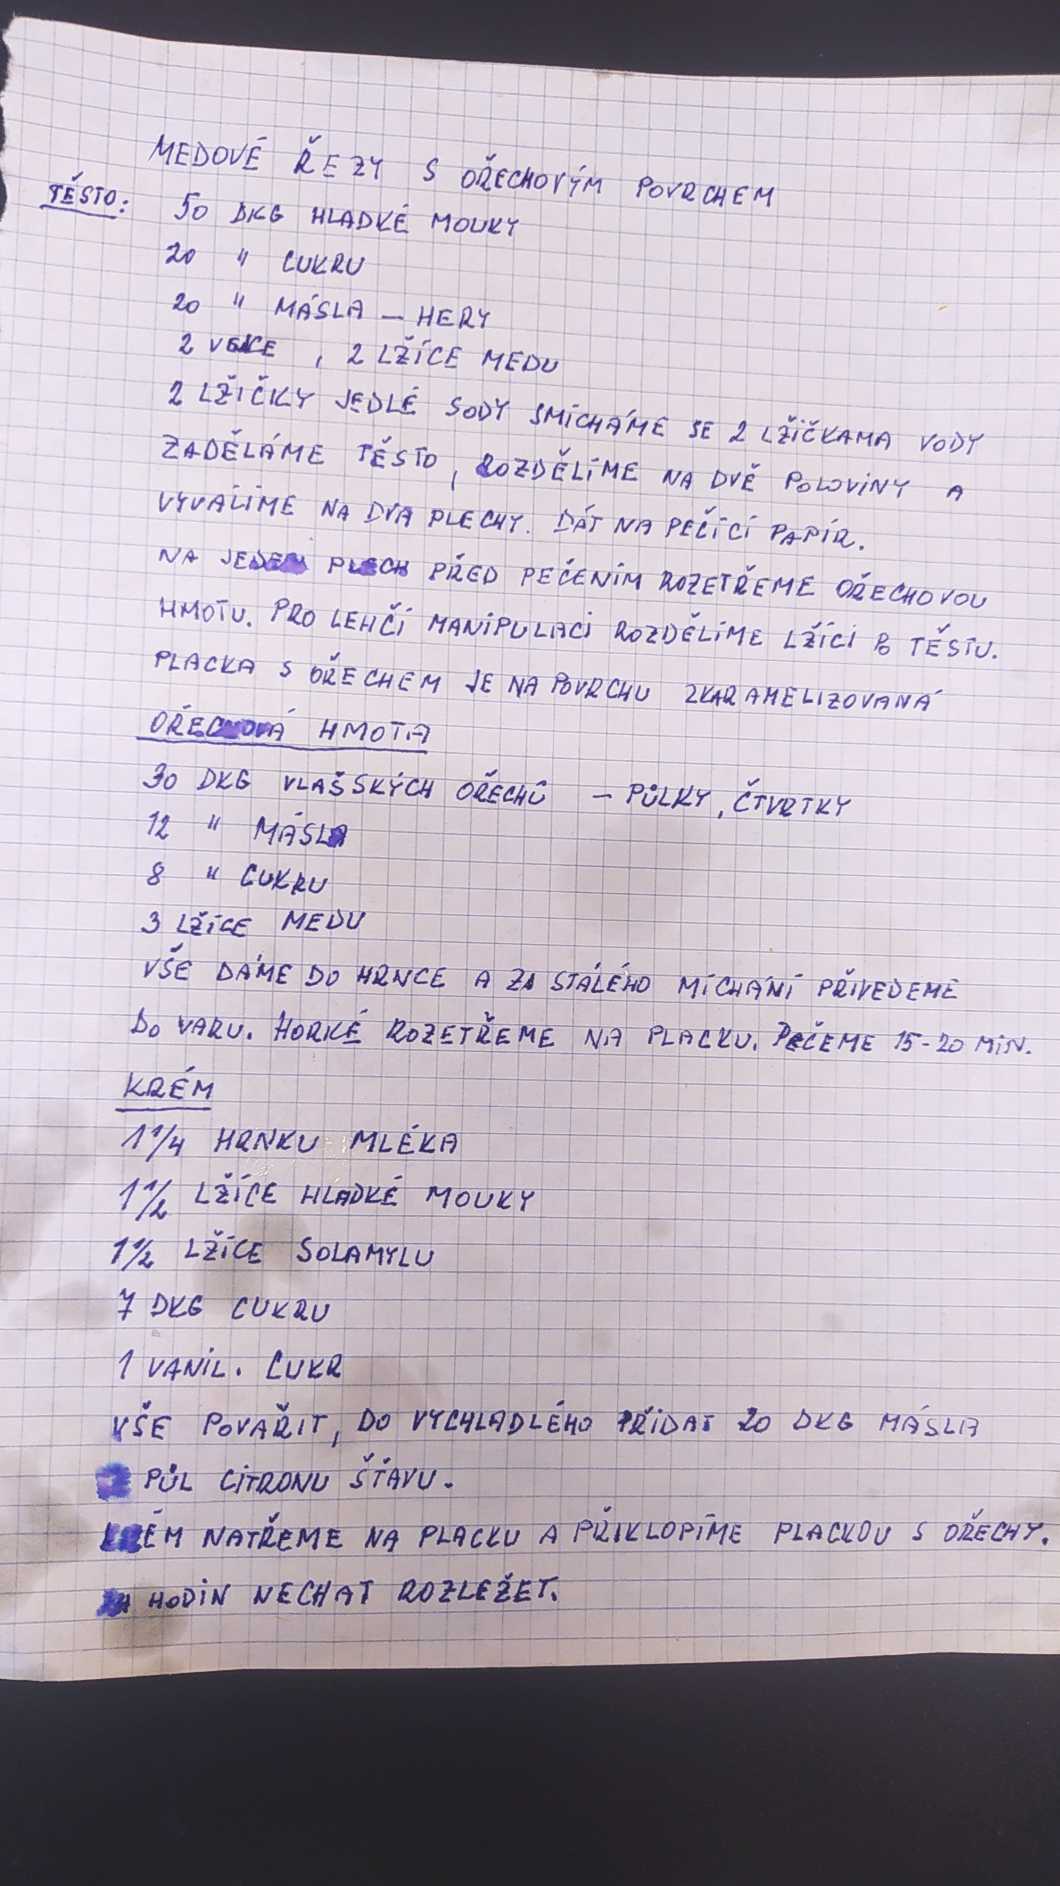 MEDOVÉ ŘEZY S OŘECHOVÝM POVRCHEM
TĚSTO: 50 DKG HLADKÉ MOUKY
20 " CUKRU
20 " MÁSLA – HERY
2 VEJCE, 2 LŽÍCE MEDU
2 LŽIČKY JEDLÉ SODY SMÍCHÁME SE 2 LŽIČKAMA VODY
ZADĚLÁME TĚSTO, ROZDĚLÍME NA DVĚ POLOVINY A
VYVÁLÍME NA DVA PLECHY. DÁT NA PEČÍCÍ PAPÍR.
NA JEDEN PLECH PŘED PEČENÍM ROZETŘEME OŘECHOVOU
HMOTU. PRO LEHČÍ MANIPULACI ROZDĚLÍME LŽÍCÍ PO TĚSTU.
PLACKA S OŘECHEM JE NA POVRCHU ZKARAMELIZOVANÁ
OŘECHOVÁ HMOTA
30 DKG VLAŠSKÝCH OŘECHŮ – PŮLKY, ČTVRTKY
12 " MÁSLA
8 " CUKRU
3 LŽÍCE MEDU
VŠE DÁME DO HRNCE A ZA STÁLÉHO MÍCHÁNÍ PŘIVEDEME
DO VARU. HORKÉ ROZETŘEME NA PLACKU. PEČEME 15-20 MIN.
KRÉM
1 1/4 HRNKU MLÉKA
1 1/2 LŽÍCE HLADKÉ MOUKY
1 1/2 LŽÍCE SOLAMYLU
7 DKG CUKRU
1 VANIL. CUKR
VŠE POVAŘIT, DO VYCHLADLÉHO PŘIDAT 20 DKG MÁSLA
PŮL CITRONU ŠŤÁVU.
KRÉM NATŘEME NA PLACKU A PŘIKLOPÍME PLACKOU S OŘECHY.
HODIN NECHAT ROZLEŽET.